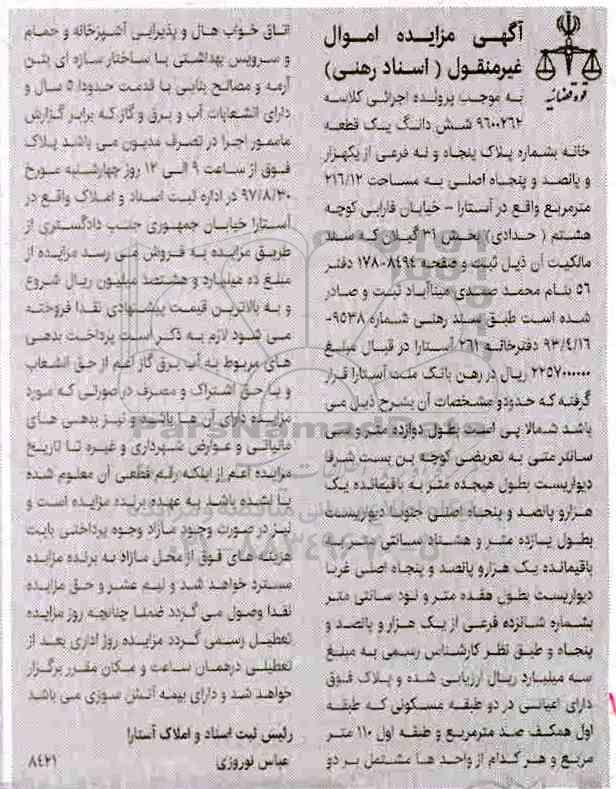 آگهی مزایده اموال
غیرمنقول ( اسناد رهنی)
قوه قضائیه
به موجب پرونده اجرائی کلاسه
۹۶۰۰۲۶۲ شش دانگ یک قطعه
خانه بشماره پلاک پنجاه و نه فرعی از یکهزار
و پانصد و پنجاه اصلی به مساحت ۲۱۶/۱۲
مترمربع واقع در آستارا – خیابان فارابی کوچه
هشتم ( حدادی) بخش ۳۱ گیلان که سند
مالکیت آن ذیل ثبت و صفحه ۸۴۹۴-۱۷۸ دفتر
۵۶ بنام محمد صمدی میناآباد ثبت و صادر
شده است طبق سند رهنی شماره ۹۵۳۸-
۹۳/۴/۱۶ دفترخانه ۲۶۱ آستارا در قبال مبلغ
۲۲۵۷۰۰۰۰۰۰ ریال در رهن بانک ملت آستارا قرار
گرفته که حدود و مشخصات آن بشرح ذیل می
باشد شمالا پی است بطول دوازده متر و سی
سانتر متی به تعریضی کوچه بن بست شرقا
دیواریست بطول هیجده متر به باقیمانده یک
هزار و پانصد و پنجاه اصلی جنوبا دیواریست
بطول یازده متر و هشتاد سانتی متر به
باقیمانده یک هزار و پانصد و پنجاه اصلی غربا
دیواریست بطول هفده متر و نود سانتی متر
بشماره شانزده فرعی از یک هزار و پانصد و
پنجاه و طبق نظر کارشناس رسمی به مبلغ
سه میلیارد ریال ارزیابی شده و پلاک فوق
دارای اعیانی در دو طبقه مسکونی که طبقه
اول همکف صد مترمربع و طبقه اول ۱۱۰ متر
مربع و هر کدام از واحد ها مشتمل بر دو
اتاق خواب هال و پذیرایی آشپزخانه و حمام
و سرویس بهداشتی با ساختار سازه ای بتن
آرمه و مصالح بنایی با قدمت حدودا ۵ سال و
دارای انشعابات آب و برق و گاز که برابر گزارش
مامور اجرا در تصرف مدیون می باشد پلاک
فوق از ساعت ۹ الی ۱۲ روز چهارشنبه مورخ
۹۷/۸/۳۰ در اداره ثبت اسناد و املاک واقع در
آستارا خیابان جمهوری جنب دادگستری از
طریق مزایده به فروش می رسد مزایده از
مبلغ ده میلیارد و هشتصد میلیون ریال شروع
و به بالاترین قیمت پیشنهادی نقدا فروخته
می شود لازم به ذکر است پرداخت بدهی
های مربوط به آب برق گاز اعم از حق انشعاب
و یا حق اشتراک و مصرف در صورتی که مورد
مزایده دارای آن ها باشد و نیز بدهی های
مالیاتی و عوارض شهرداری و غیره تا تاریخ
مزایده اعم از اینکه رقم قطعی آن معلوم شده
یا نشده باشد به عهده برنده مزایده است و
نیز در صورت وجود مازاد وجوه پرداختی بابت
هزینه های فوق از محل مازاد به برنده مزایده
مسترد خواهد شد و نیم عشر و حق مزایده
نقدا وصول می گردد ضمنا چنانچه روز مزایده
تعطیل رسمی گردد مزایده روز اداری بعد از
تعطیلی درهمان ساعت و مکان مقرر برگزار
خواهد شد و دارای بیمه آتش سوزی می باشد
رئیس ثبت اسناد و املاک آستارا
عباس نوروزی
۸۴۲۱
ParsNamadData